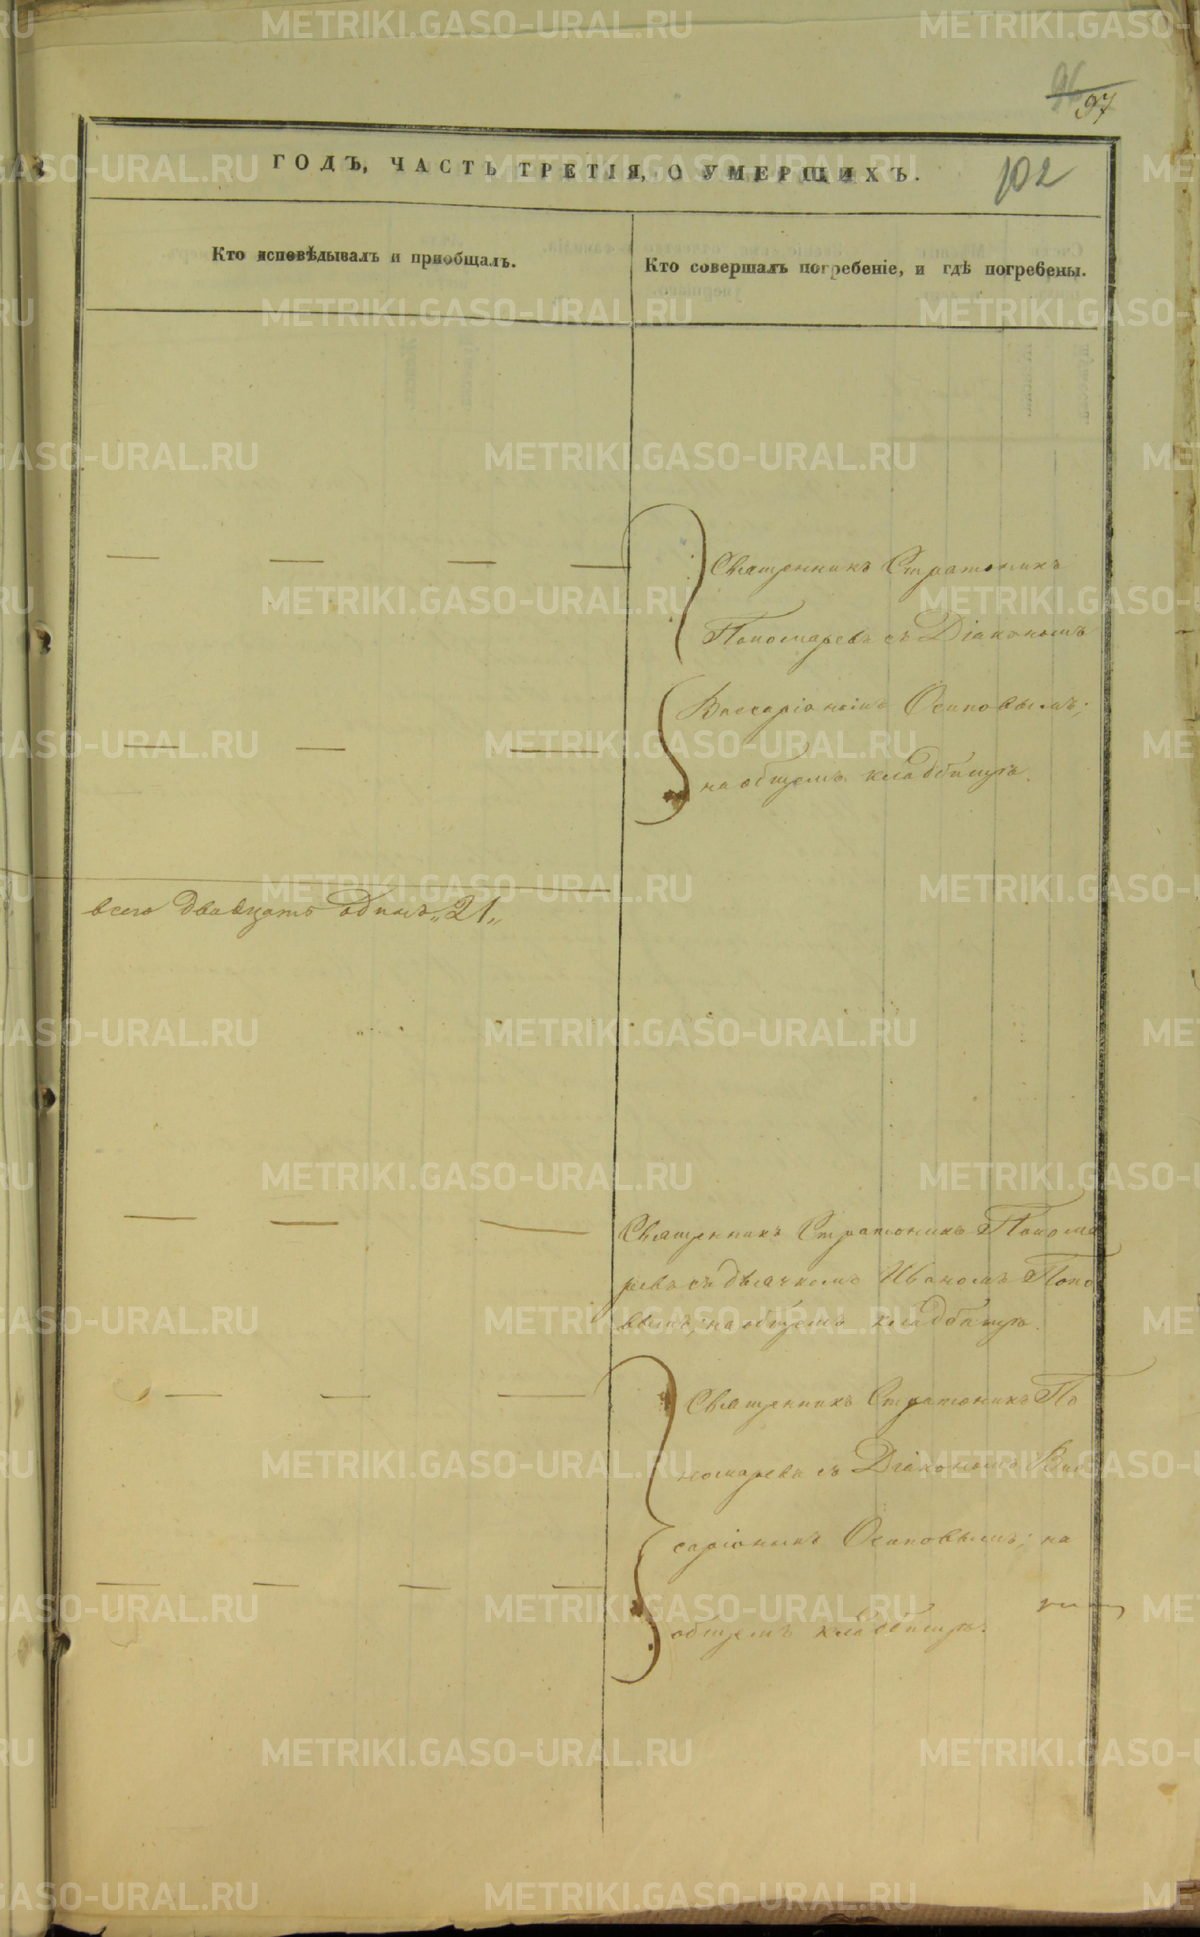 96
97
ГОДЪ, ЧАСТЬ ТРЕТІЯ, О УМЕРШИХЪ.
102
Кто исповѣдывалъ и пріобщалъ.
Кто совершалъ погребеніе, и гдѣ погребены.
Священникъ Стратоникъ
Пономаревъ съ Діакономъ
Виссаріономъ Осиповымъ;
на общемъ кладбищѣ.
всего двадцать одинъ „21„
Священникъ Стратоникъ Понома
ревъ съ дьячкомъ Иваномъ Попо
вымъ; на общемъ кладбищѣ.
Священникъ Стратоникъ По
номаревъ съ Діакономъ Вис
саріономъ Осиповымъ; на
общемъ кладбищѣ.
METRIKI.GASO-URAL.RU